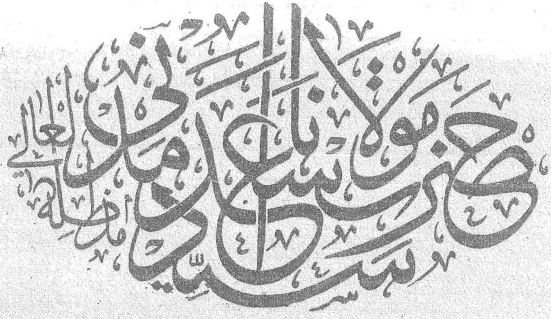 حضرت مولانا سیّد اسعد مدنی مدظلہ العالی